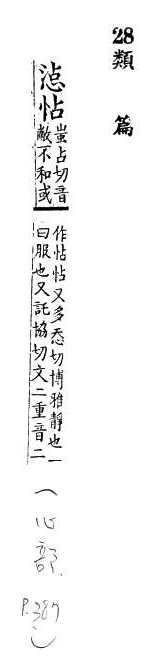 28類 篇
惉怗
蚩占切音
敝不和或
作怗怗又多忝切博雅靜也一
曰服也又託協切文二重音二
(心部 P.387)